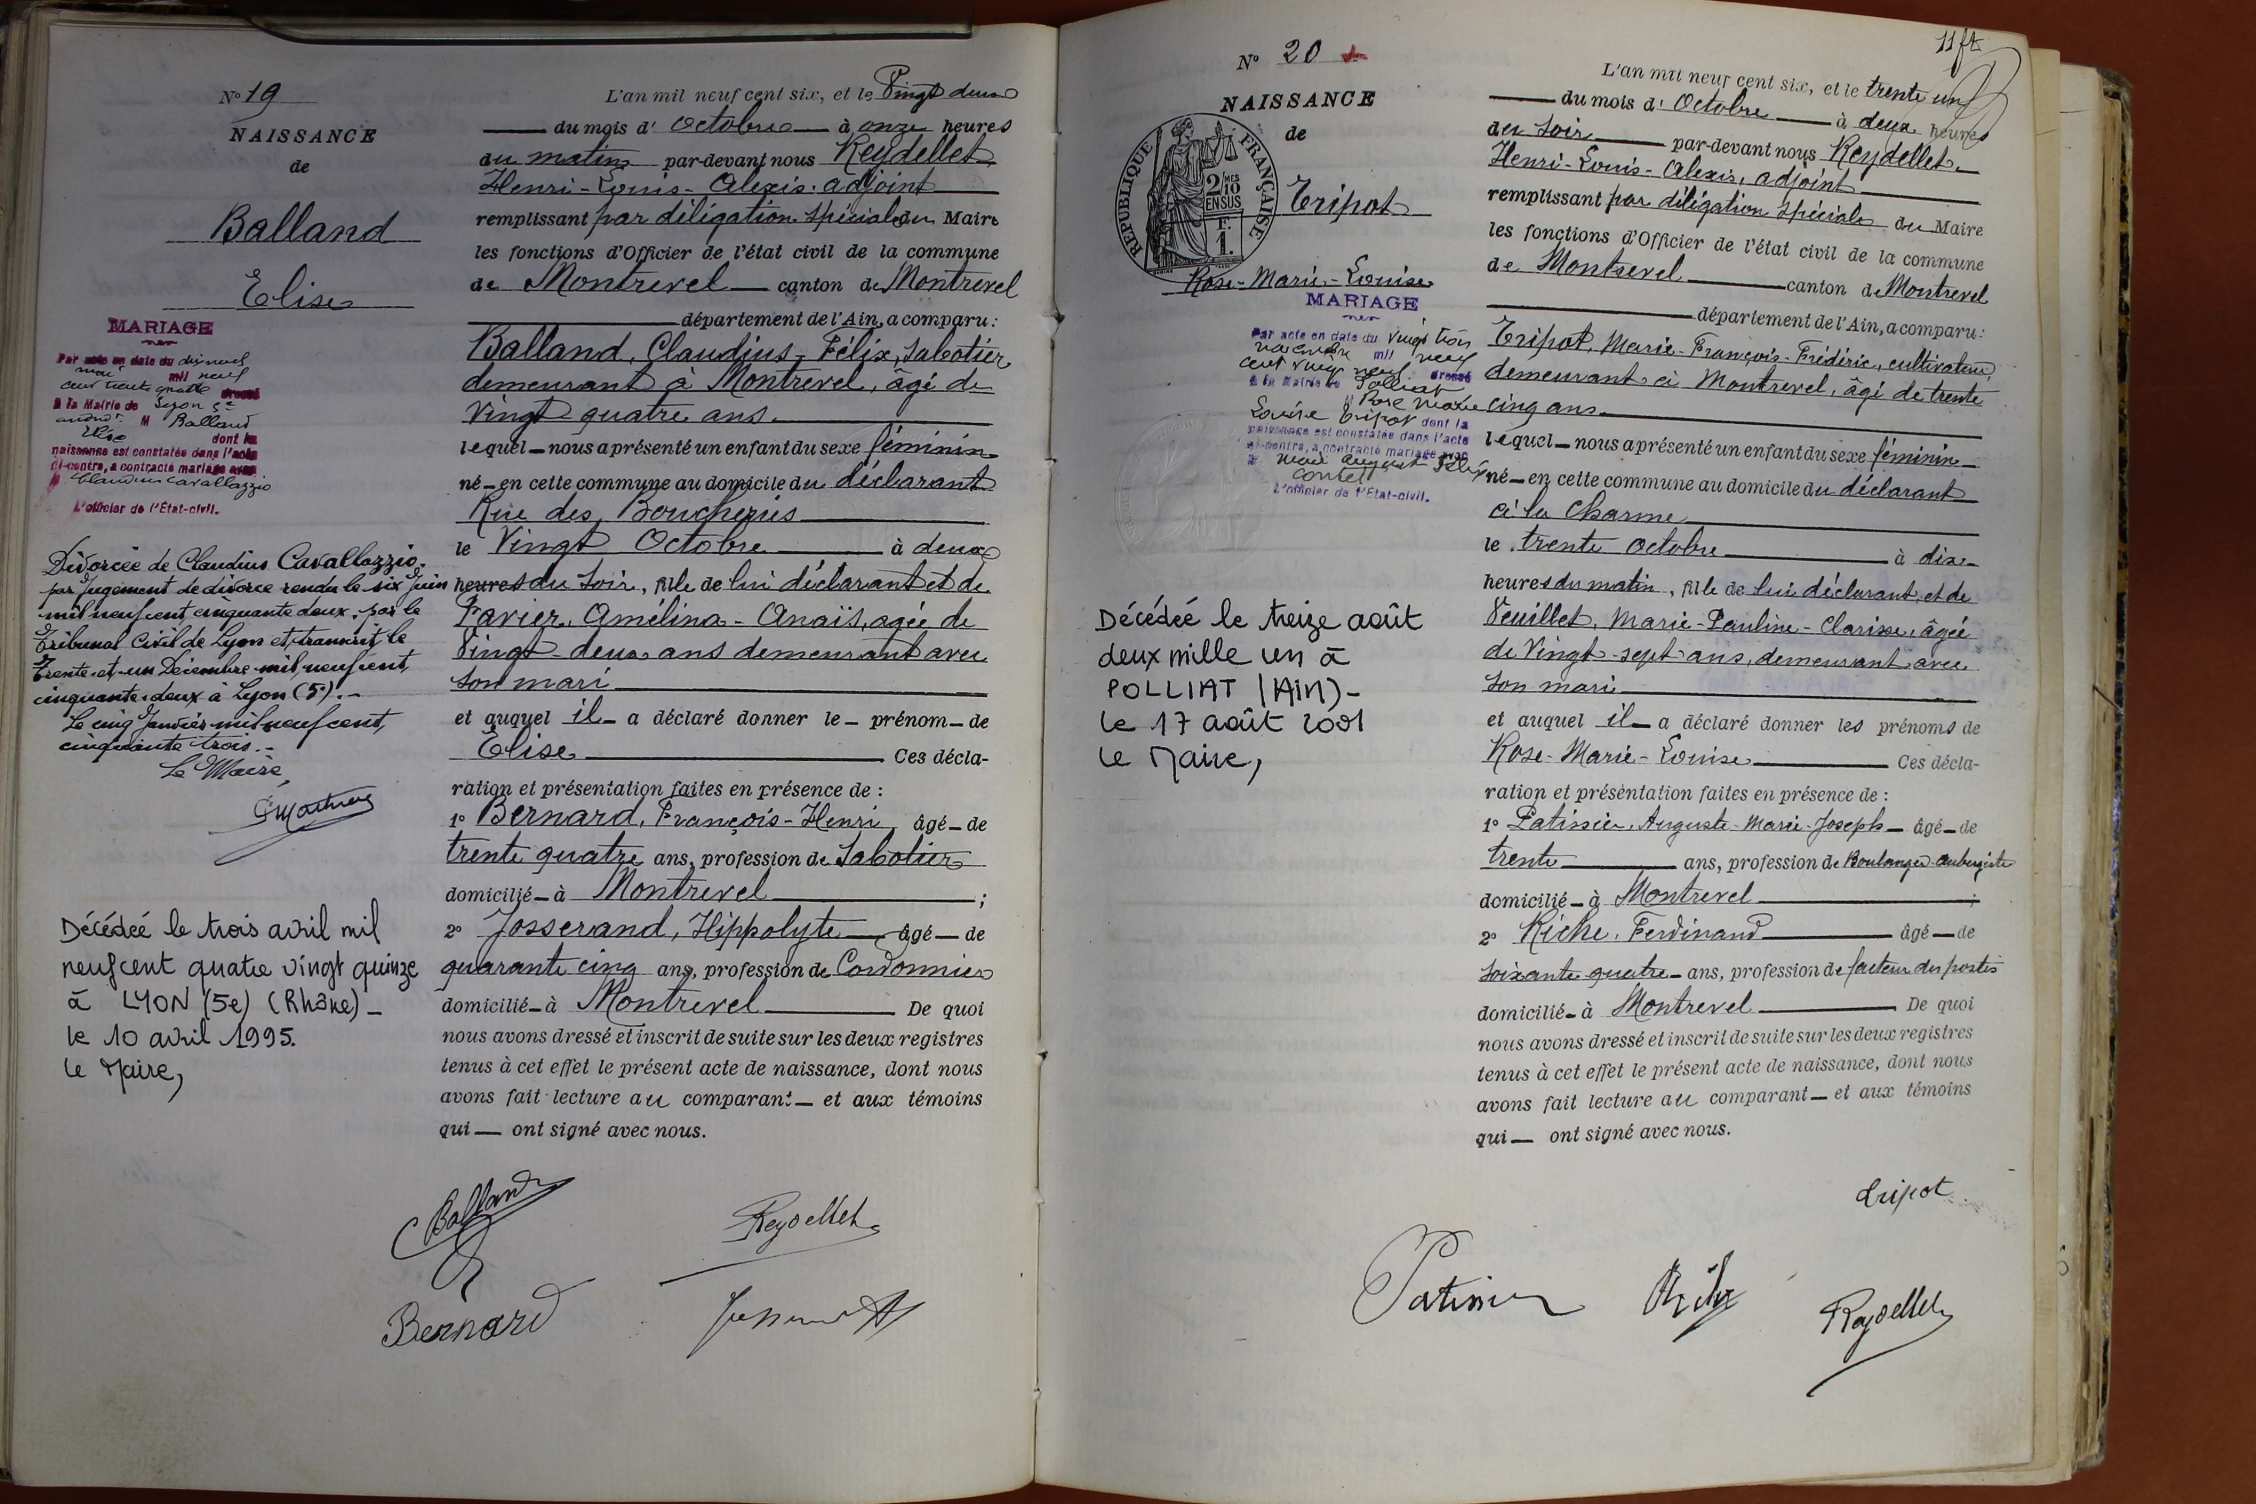 N° 19
NAISSANCE
de
Balland
Elise
MARIAGE
Par acte en date du dix neuf
mai mil neuf
cent trente quatre dressé
à la Mairie de Lyon 5e
arrondt M Balland
Elise dont la
naissance est constatée dans l'acte
ci-contre, a contracté mariage avec
M Claudius Cavallazzio
L'officier de l'Etat-civil.
Divorcée de Claudius Cavallazzio.
par Jugement de divorce rendu le six Juin
mil neuf cent cinquante deux, par le
Tribunal Civil de Lyon et transcrit le
Trente et un Décembre mil neuf cent,
cinquante deux à Lyon (5e).-
Le cinq Janvier mil neuf cent,
cinquante trois.-
Le Maire,
Décédéé le trois avril mil
neuf cent quatre vingt quinze
à LYON (5e) (Rhône)_
le 10 avril 1995.
le Maire,
L'an mil neuf cent six, et le Vingt deux
du mois d' Octobre à onze heures
du matin par-devant nous Reydellet
Henri-Louis-Alexis. adjoint
remplissant par déligation spéciale du Maire
les fonctions d'Officier de l'état civil de la commune
de Montrevel canton de Montrevel
département de l'Ain, a comparu:
Balland, Claudius, Félix, Sabotier
demeurant à Montrevel, âgé de
Vingt quatre ans.
lequel _ nous a présenté un enfant du sexe féminin
né _ en cette commune au domicile du déclarant
Rue des Boucheries
le Vingt Octobre à deux
heures du soir, fille de lui déclarant et de
Favier, Amélina-Anaïs, agée de
Vingt-deux ans demeurant avec
son mari
et auquel il _ a déclaré donner le _ prénom _ de
Elise Ces décla-
ration et présentation faites en présence de :
1° Bernard, François-Henri, âgé _ de
trente quatre ans, profession de Sabotier
domicilié _ à Montrevel ;
2° Josserand, Hippolyte âgé _ de
quarante cinq ans, profession de Cordonnier
domicilié _ à Montrevel De quoi
nous avons dressé et inscrit de suite sur les deux registres
tenus à cet effet le présent acte de naissance, dont nous
avons fait lecture au comparant _ et aux témoins
qui _ ont signé avec nous.
Balland
Reydellet
Bernard
N° 20
NAISSANCE
de
RÉPUBLIQUE FRANÇAISE
2/10 MES
EN SUS
F.
1.
Tripot
Rose-Marie-Louise
MARIAGE
Par acte en date du vingt trois
novembre mil neuf
cent vingt neuf dressé
à la Mairie de Polliat
M Rose Marie
Louise Tripot dont la
naissance est constatée dans l'acte
ci-contre, a contracté mariage avec
L'officier de l'Etat-civil.
Décédéé le treize août
deux mille un à
POLLIAT (AIN)-
le 17 août 2001
le Maire,
11 ft
L'an mil neuf cent six, et le trente un
du mois d' Octobre à deux heures
du soir par-devant nous Reydellet
Henri-Louis-Alexis, adjoint
remplissant par déligation spéciale du Maire
les fonctions d'Officier de l'état civil de la commune
de Montrevel canton de Montrevel
département de l'Ain, a comparu:
Tripot, Marie-François-Frédéric, cultivateur,
demeurant à Montrevel, âgé de trente
cinq ans.
lequel _ nous a présenté un enfant du sexe féminin
né _ en cette commune au domicile du déclarant
à la Charme
le trente octobre à dix
heures du matin, fille de lui déclarant, et de
Veuillet, Marie-Pauline-Clarisse, âgée
de Vingt-sept ans, demeurant avec
son mari
et auquel il _ a déclaré donner les prénoms de
Rose-Marie-Louise Ces décla-
ration et présentation faites en présence de :
1° Patissier, Auguste-Marie-Joseph _ âgé _ de
trente ans, profession de Boulanger-aubergiste
domicilié _ à Montrevel ;
2° Riche, Ferdinand âgé _ de
soixante quatre _ ans, profession de facteur des postes
domicilié _ à Montrevel De quoi
nous avons dressé et inscrit de suite sur les deux registres
tenus à cet effet le présent acte de naissance, dont nous
avons fait lecture au comparant _ et aux témoins
qui _ ont signé avec nous.
Tripot
Patissier
Riche
Reydellet